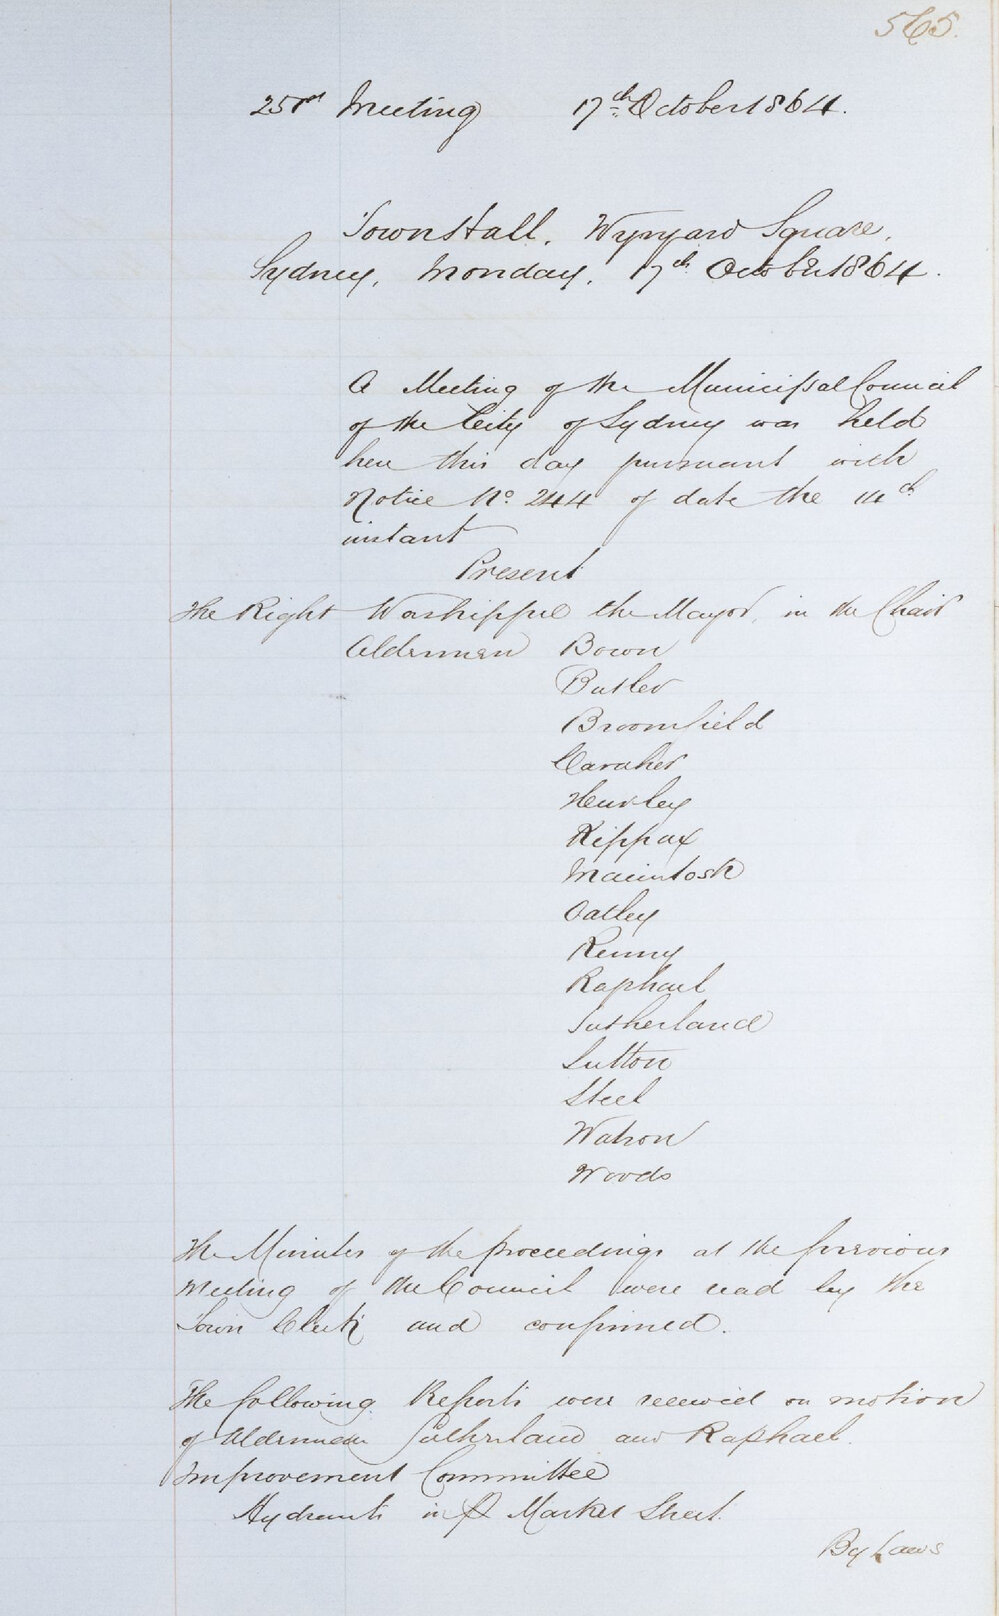 565.
25st Meeting 17th October 1864.
Town Hall, Wynyard Square,
Sydney, Monday, 17th October 1864.
A Meeting of the Municipal Council
of the City of Sydney was held
here this day pursuant with
Notice No. 244 of date the 14th
instant
Present
The Right Worshipful the Mayor, in the Chair
Aldermen Bown
Butler
Broomfield
Caraher
Hurley
Kippax
Macintosh
Oatley
Renny
Raphael
Sutherland
Sutton
Steel
Watson
Woods
The Minutes of the proceedings at the previous
Meeting of the Council were read by the
Town Clerk and confirmed.
The following Reports were received on motion
of Aldermen Sutherland and Raphael.
Improvement Committee
Hydrants in Market Street.
By Laws